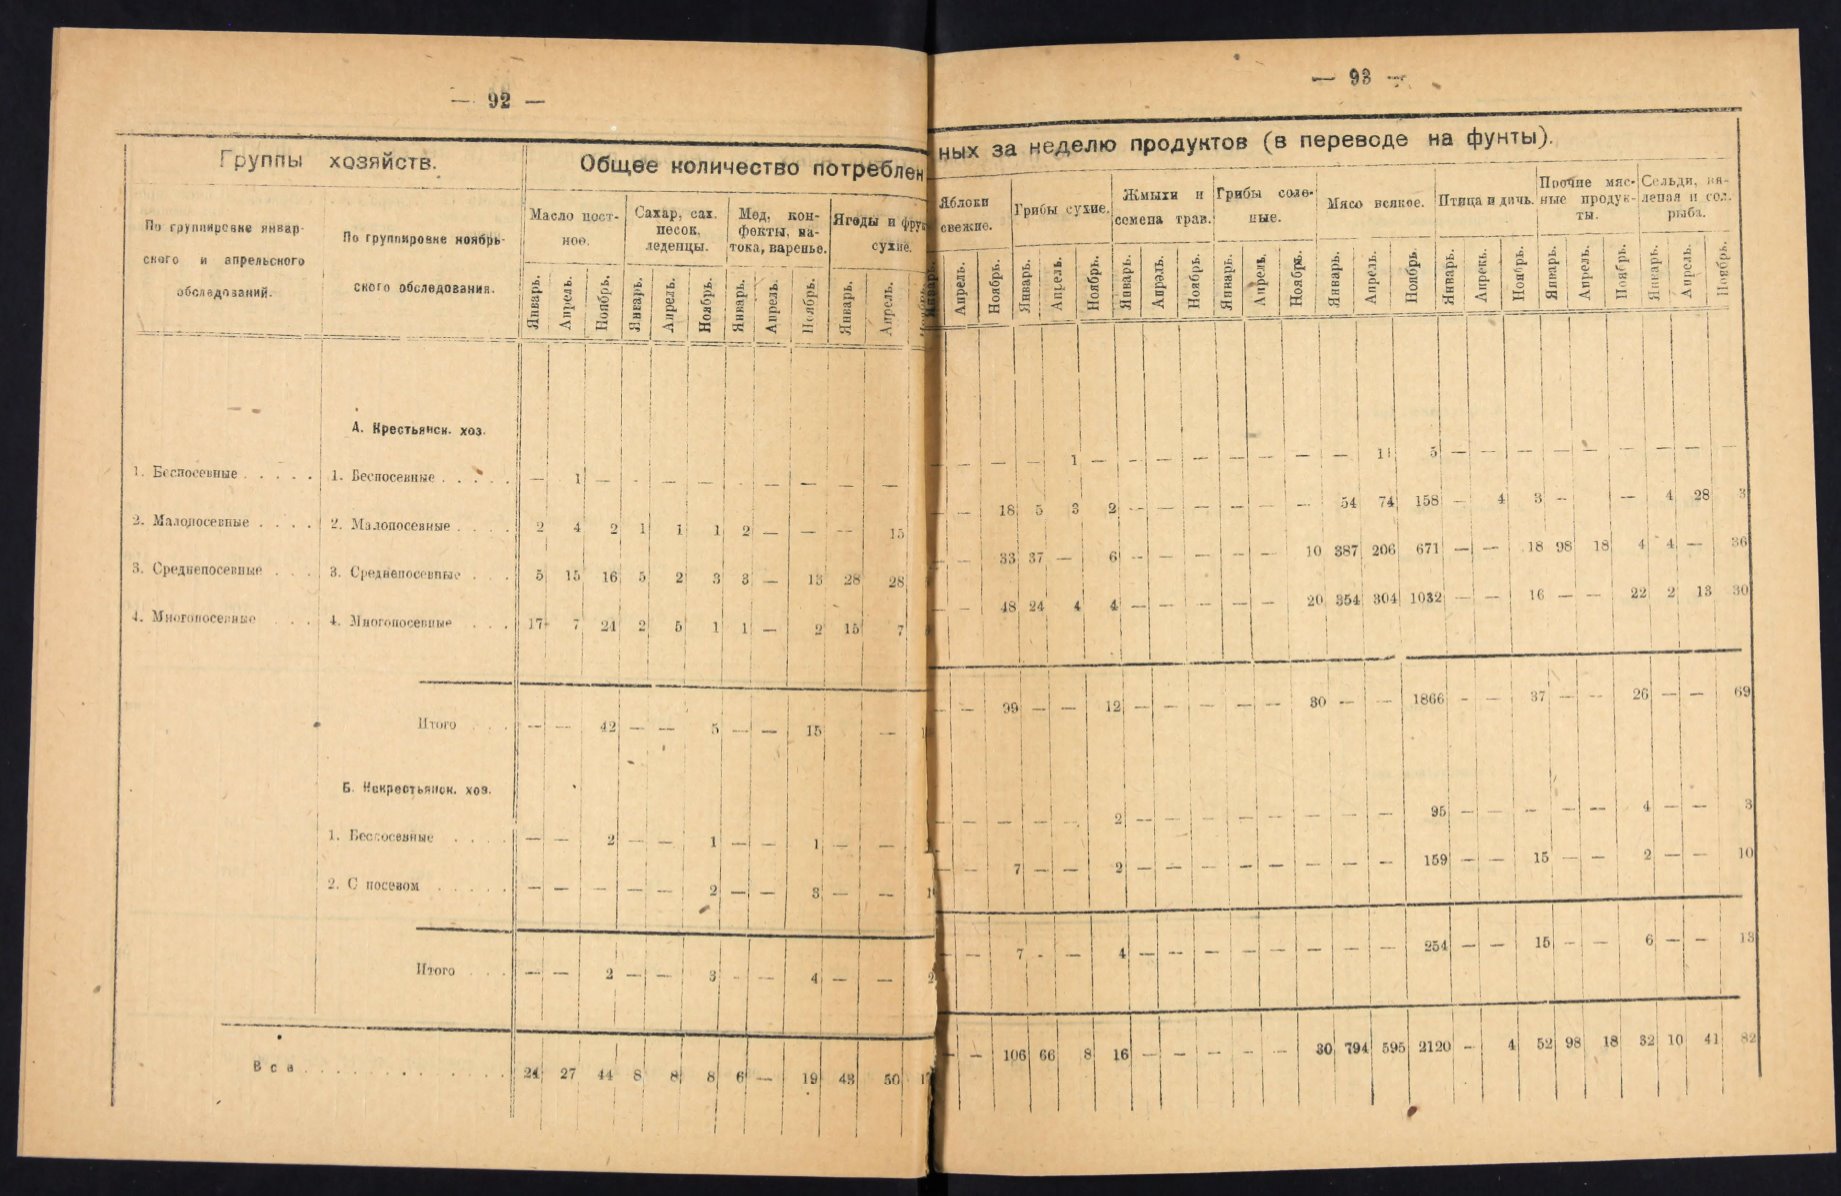 — 92 —
Группы хозяйств.
Общее количество потреблен
По группировке январ-
ского и апрельского
обследований.
По группировке ноябрь-
ского обследования.
Масло пост-
ное.
Сахар, сах.
песок,
леденцы.
Мед, кон-
фекты, па-
тока, варенье.
Ягоды и фрук
сухие.
Январь. Апрель. Ноябрь. Январь. Апрель. Ноябрь. Январь. Апрель. Ноябрь. Январь. Апрель.
А. Крестьянск. хоз.
1. Беспосевные . . . . . 1. Беспосевные . . . . . — 1 — - — — — — — —
2. Малопосевные . . . . 2. Малопосевные . . . . 2 4 2 1 1 1 2 — — — — 15
3. Среднепосевные . . . 3. Среднепосевные . . . 5 15 16 5 2 3 3 — 13 28 28
4. Многопосевные . . . 4. Многопосевные . . . 17 7 21 2 5 1 1 — 2 15 7
Итого . . — — 42 — — 5 — — 15 —
Б. Некрестьянск. хоз.
1. Беспосевные . . . . — — 2 — — 1 — — 1 — —
2. С посевом . . . . . — — — — — 2 — — 3 — —
Итого . . . — — 2 — — 3 - — 4 — —
Все . . . . . . . . . 24 27 44 8 8 8 6 — 19 43 50
— 93 —
ных за неделю продуктов (в переводе на фунты).
Яблоки
свежие.
Грибы сухие.
Жмыхи и
семена трав.
Грибы соле-
ные.
Мясо всякое.
Птица и дичь.
Прочие мяс-
ные продук-
ты.
Сельди, вя-
леная и сол.
рыба.
Январь. Апрель. Ноябрь. Январь. Апрель. Ноябрь. Январь. Апрель. Ноябрь. Январь. Апрель. Ноябрь. Январь. Апрель. Ноябрь. Январь. Апрель. Ноябрь. Январь. Апрель. Ноябрь. Январь. Апрель. Ноябрь.
— — — — 1 — — — — — — — — 11 5 — — — — — — — — —
— — 18 5 3 2 — — — — — — 54 74 158 — 4 3 — — 4 28 3
— — 33 37 — 6 — — — — — 10 387 206 671 — — 18 98 18 4 4 — 36
— — 48 24 4 4 — — — — — 20 354 304 1032 — — 16 — — 22 2 13 30
— — 99 — — 12 — — — — — 30 — — 1866 - — 37 — — 26 — — 69
— — — — — 2 — — — — — — — — 95 — — — — — 4 — — 3
— — 7 — — 2 — — — — — — — — 159 — — 15 — — 2 — — 10
— — 7 - — 4 — — — — — — — — 254 — — 15 — — 6 — — 13
— — 106 66 8 16 — — — — — 30 794 595 2120 — 4 52 98 18 32 10 41 82